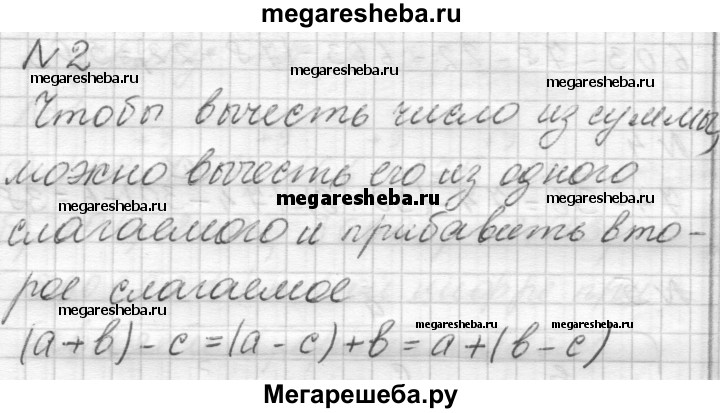 megaresheba.ru
N 2
megaresheba.ru megaresheba.ru megaresheba.ru
Чтобы вычесть число из суммы,
можно вычесть его из одного
megaresheba.ru megaresheba.ru megaresheba.ru
слагаемого и прибавить вто-
рое слагаемое
megaresheba.ru megaresheba.ru megaresheba.ru
(а+в)-с=(а-с)+в=а+(в-с)
Мегарешеба.ру